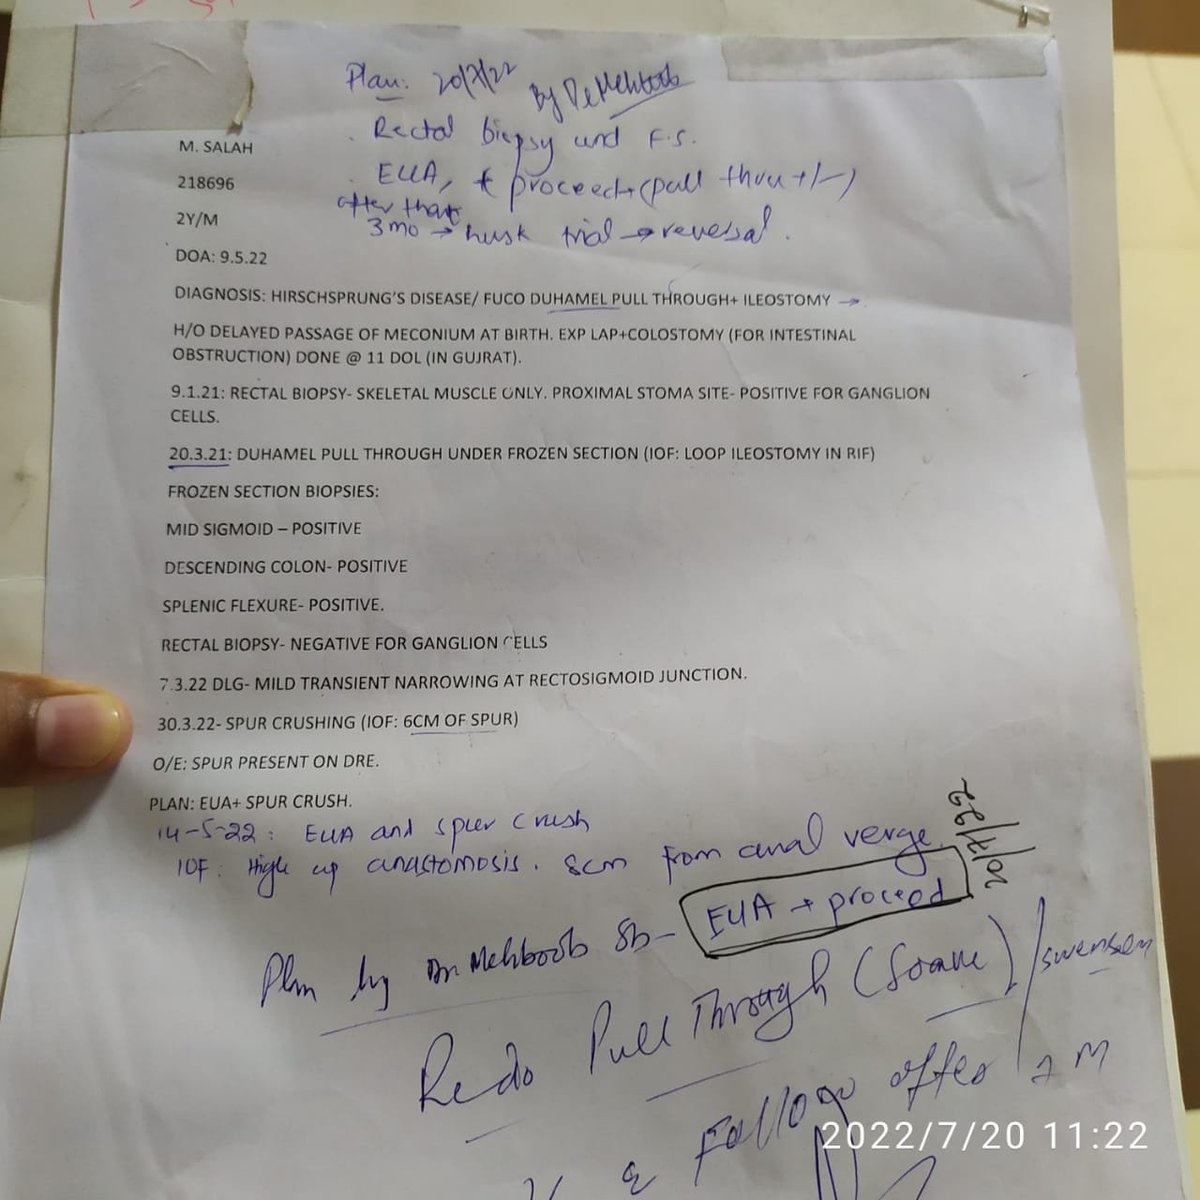 Plan: 20/7/22 By Dr Mehboob
. Rectal biopsy und F.S.
. EUA, + proceed + (pull thru +/-)
after that
3mo → husk trial → reversal.
M. SALAH
218696
2Y/M
DOA: 9.5.22
DIAGNOSIS: HIRSCHSPRUNG'S DISEASE/ FUCO DUHAMEL PULL THROUGH+ ILEOSTOMY →
H/O DELAYED PASSAGE OF MECONIUM AT BIRTH. EXP LAP+COLOSTOMY (FOR INTESTINAL
OBSTRUCTION) DONE @ 11 DOL (IN GUJRAT).
9.1.21: RECTAL BIOPSY- SKELETAL MUSCLE ONLY. PROXIMAL STOMA SITE- POSITIVE FOR GANGLION
CELLS.
20.3.21: DUHAMEL PULL THROUGH UNDER FROZEN SECTION (IOF: LOOP ILEOSTOMY IN RIF)
FROZEN SECTION BIOPSIES:
MID SIGMOID – POSITIVE
DESCENDING COLON- POSITIVE
SPLENIC FLEXURE- POSITIVE.
RECTAL BIOPSY- NEGATIVE FOR GANGLION CELLS
7.3.22 DLG- MILD TRANSIENT NARROWING AT RECTOSIGMOID JUNCTION.
30.3.22- SPUR CRUSHING (IOF: 6CM OF SPUR)
O/E: SPUR PRESENT ON DRE.
PLAN: EUA+ SPUR CRUSH.
14-5-22: EUA and spur crush
IOF: High up anastomosis. 8cm from anal verge
20/7/22
Plan by Dr Mehboob Sb- EUA + proceed
Redo Pull Through (Soave) / swensen
& Follow after 2 M
2022/7/20 11:22